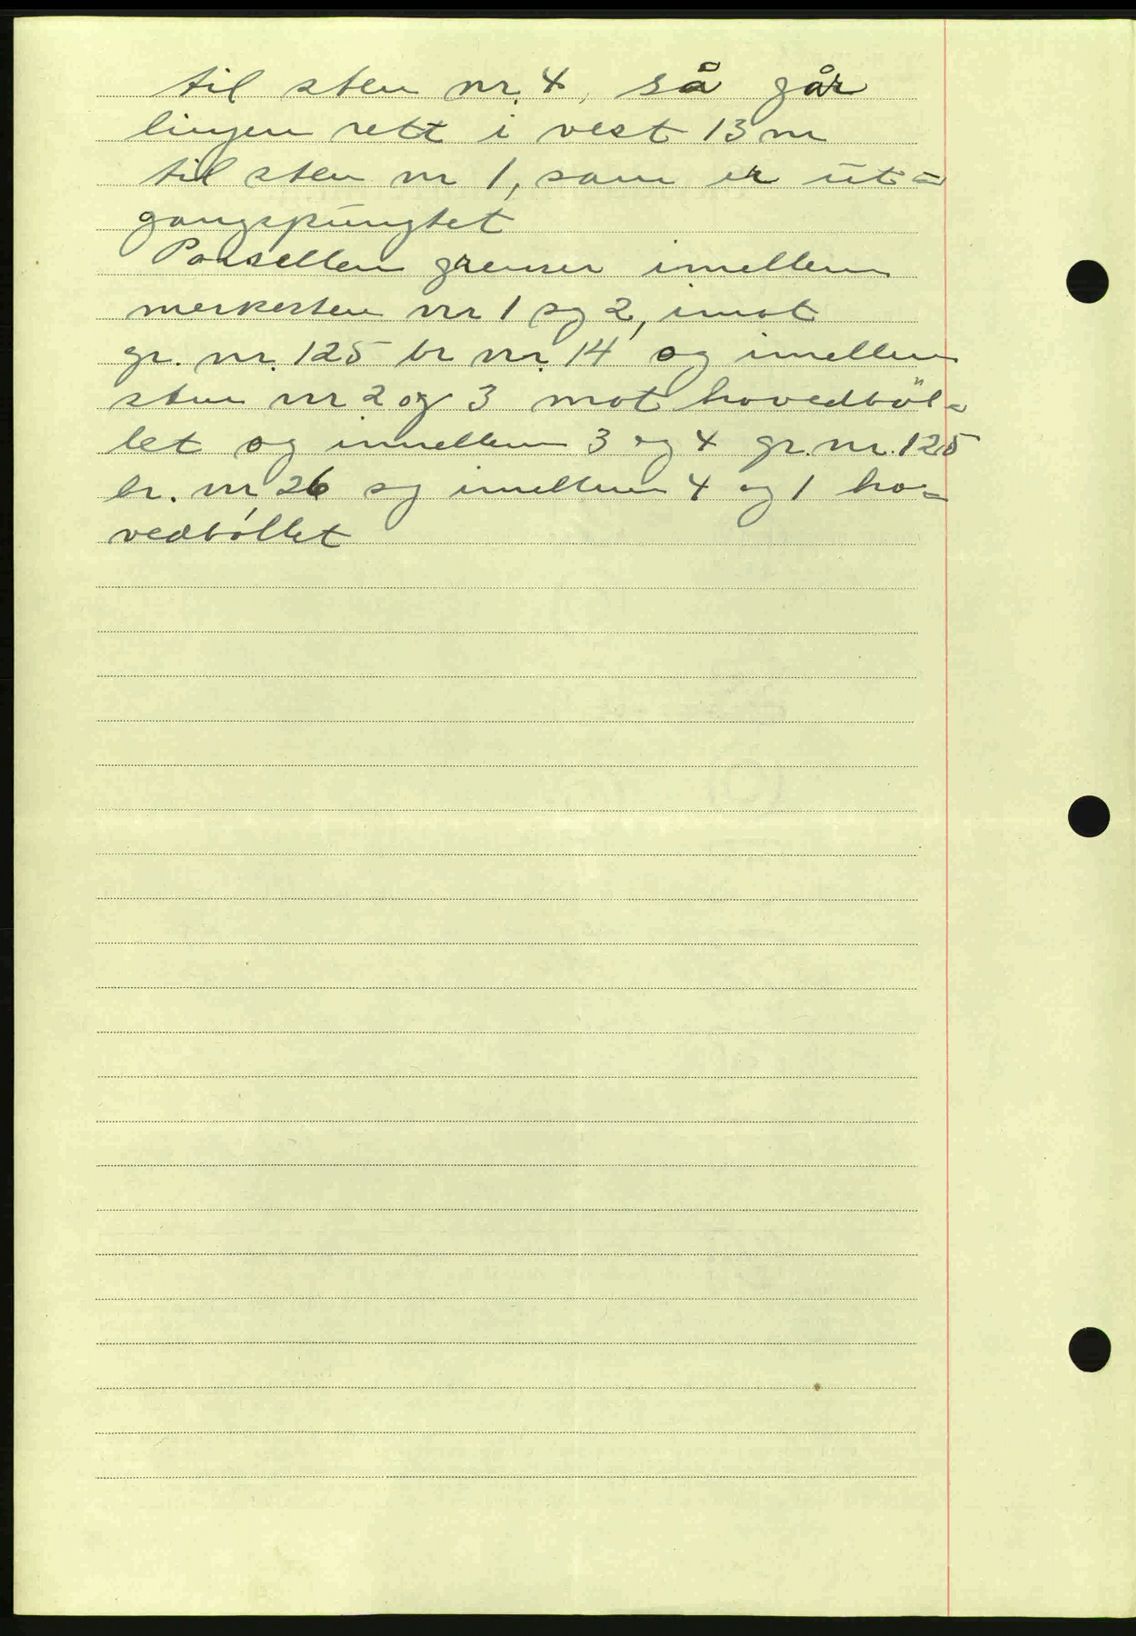 til sten nr. 4, så går
linjen rett i vest 13 m
til sten nr 1, som er ut=
gangspungtet
Parsellen grenser imellem
merkesten nr 1 og 2, imot
gr. nr. 125 br nr. 14 og imellem
sten nr 2 og 3 mot hovedböl=
let og imellem 3 og 4 gr. nr. 125
br. nr 26 og imellem 4 og 1 ho=
vedbøllet